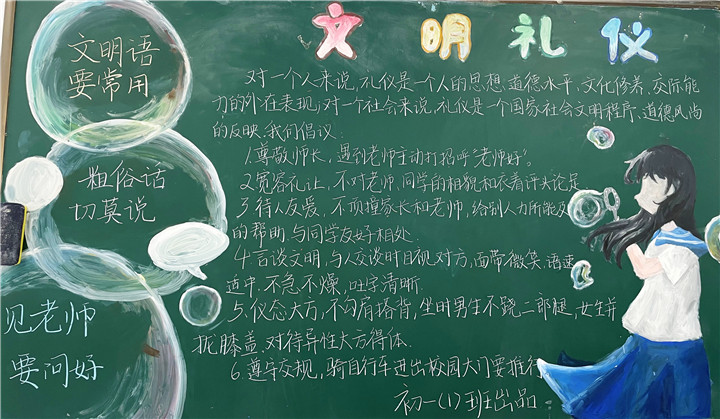 文明礼仪
文明语
要常用
粗俗话
切莫说
见老师
要问好
对一个人来说,礼仪是一个人的思想道德水平、文化修养、交际能
力的外在表现;对一个社会来说,礼仪是一个国家社会文明程序、道德风尚
的反映.我们倡议:
1.尊敬师长,遇到老师主动打招呼“老师好”。
2.宽容礼让,不对老师、同学的相貌和衣着评头论足
3.待人友爱,不顶撞家长和老师,给别人力所能及
的帮助,与同学友好相处.
4.言谈文明,与人交谈时目视对方,面带微笑.语速
适中.不急不燥,吐字清晰.
5.仪态大方,不勾肩搭背,坐时男生不跷二郎腿,女生并
拢膝盖.对待异性大方得体.
6.遵守交规,骑自行车进出校园大门要推行
初一(1)班出品